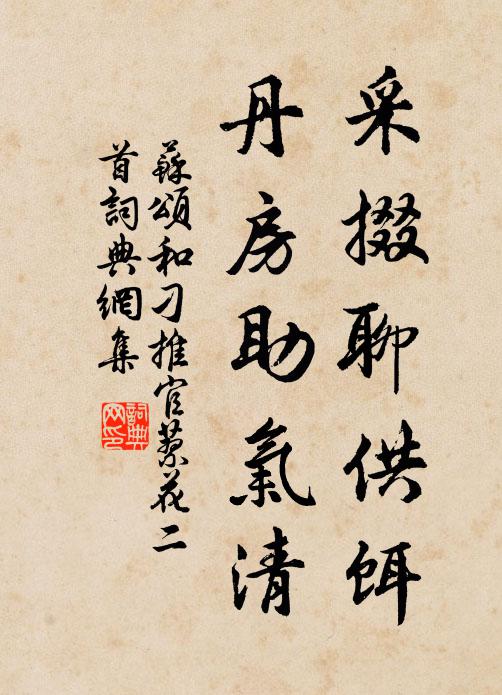 采掇聊供餌
丹房助氣清
蘇頌和刁推官蓼花二
首詞典網集
詞典
网印